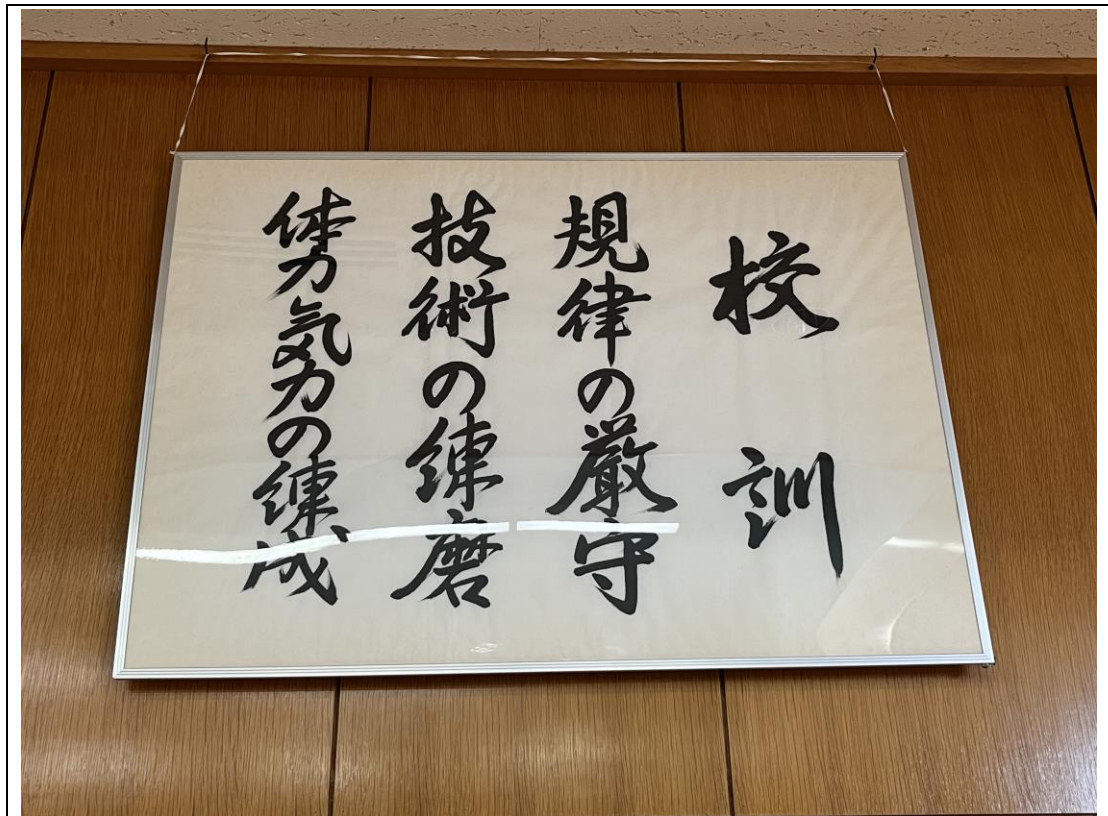 校訓
規律の厳守
技術の練磨
体力気力の練成